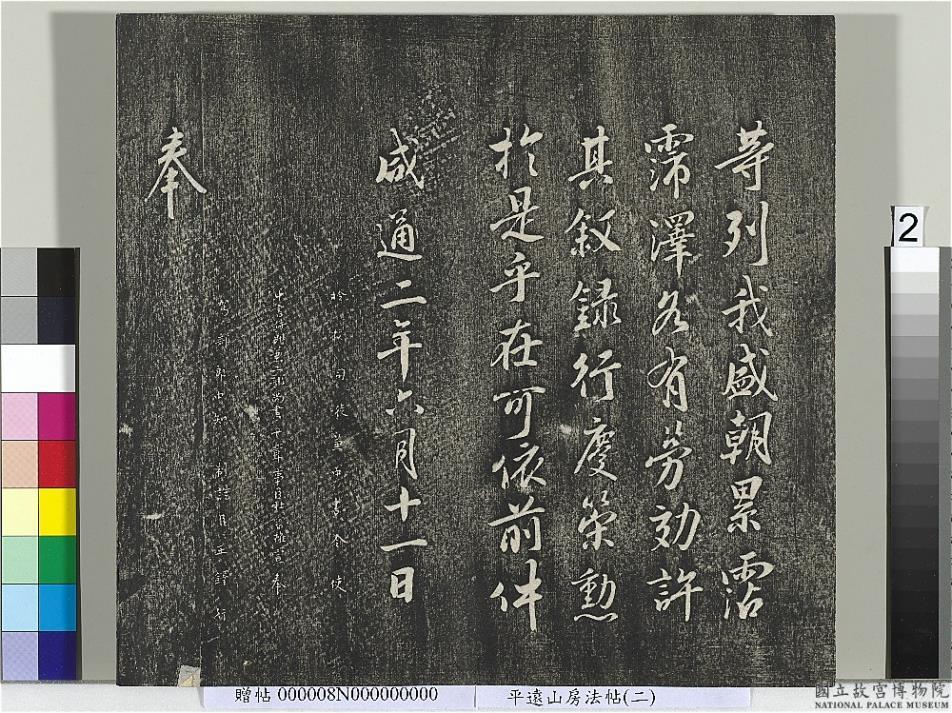 等列我盛朝累霑
霈澤久有勞効許
其敘録行慶策勳
於是乎在可依前件
咸通二年六月十一日
檢校司徒兼中書令使
奉
2
贈帖 000008N000000000
平遠山房法帖(二)
國立故宮博物院
NATIONAL PALACE MUSEUM